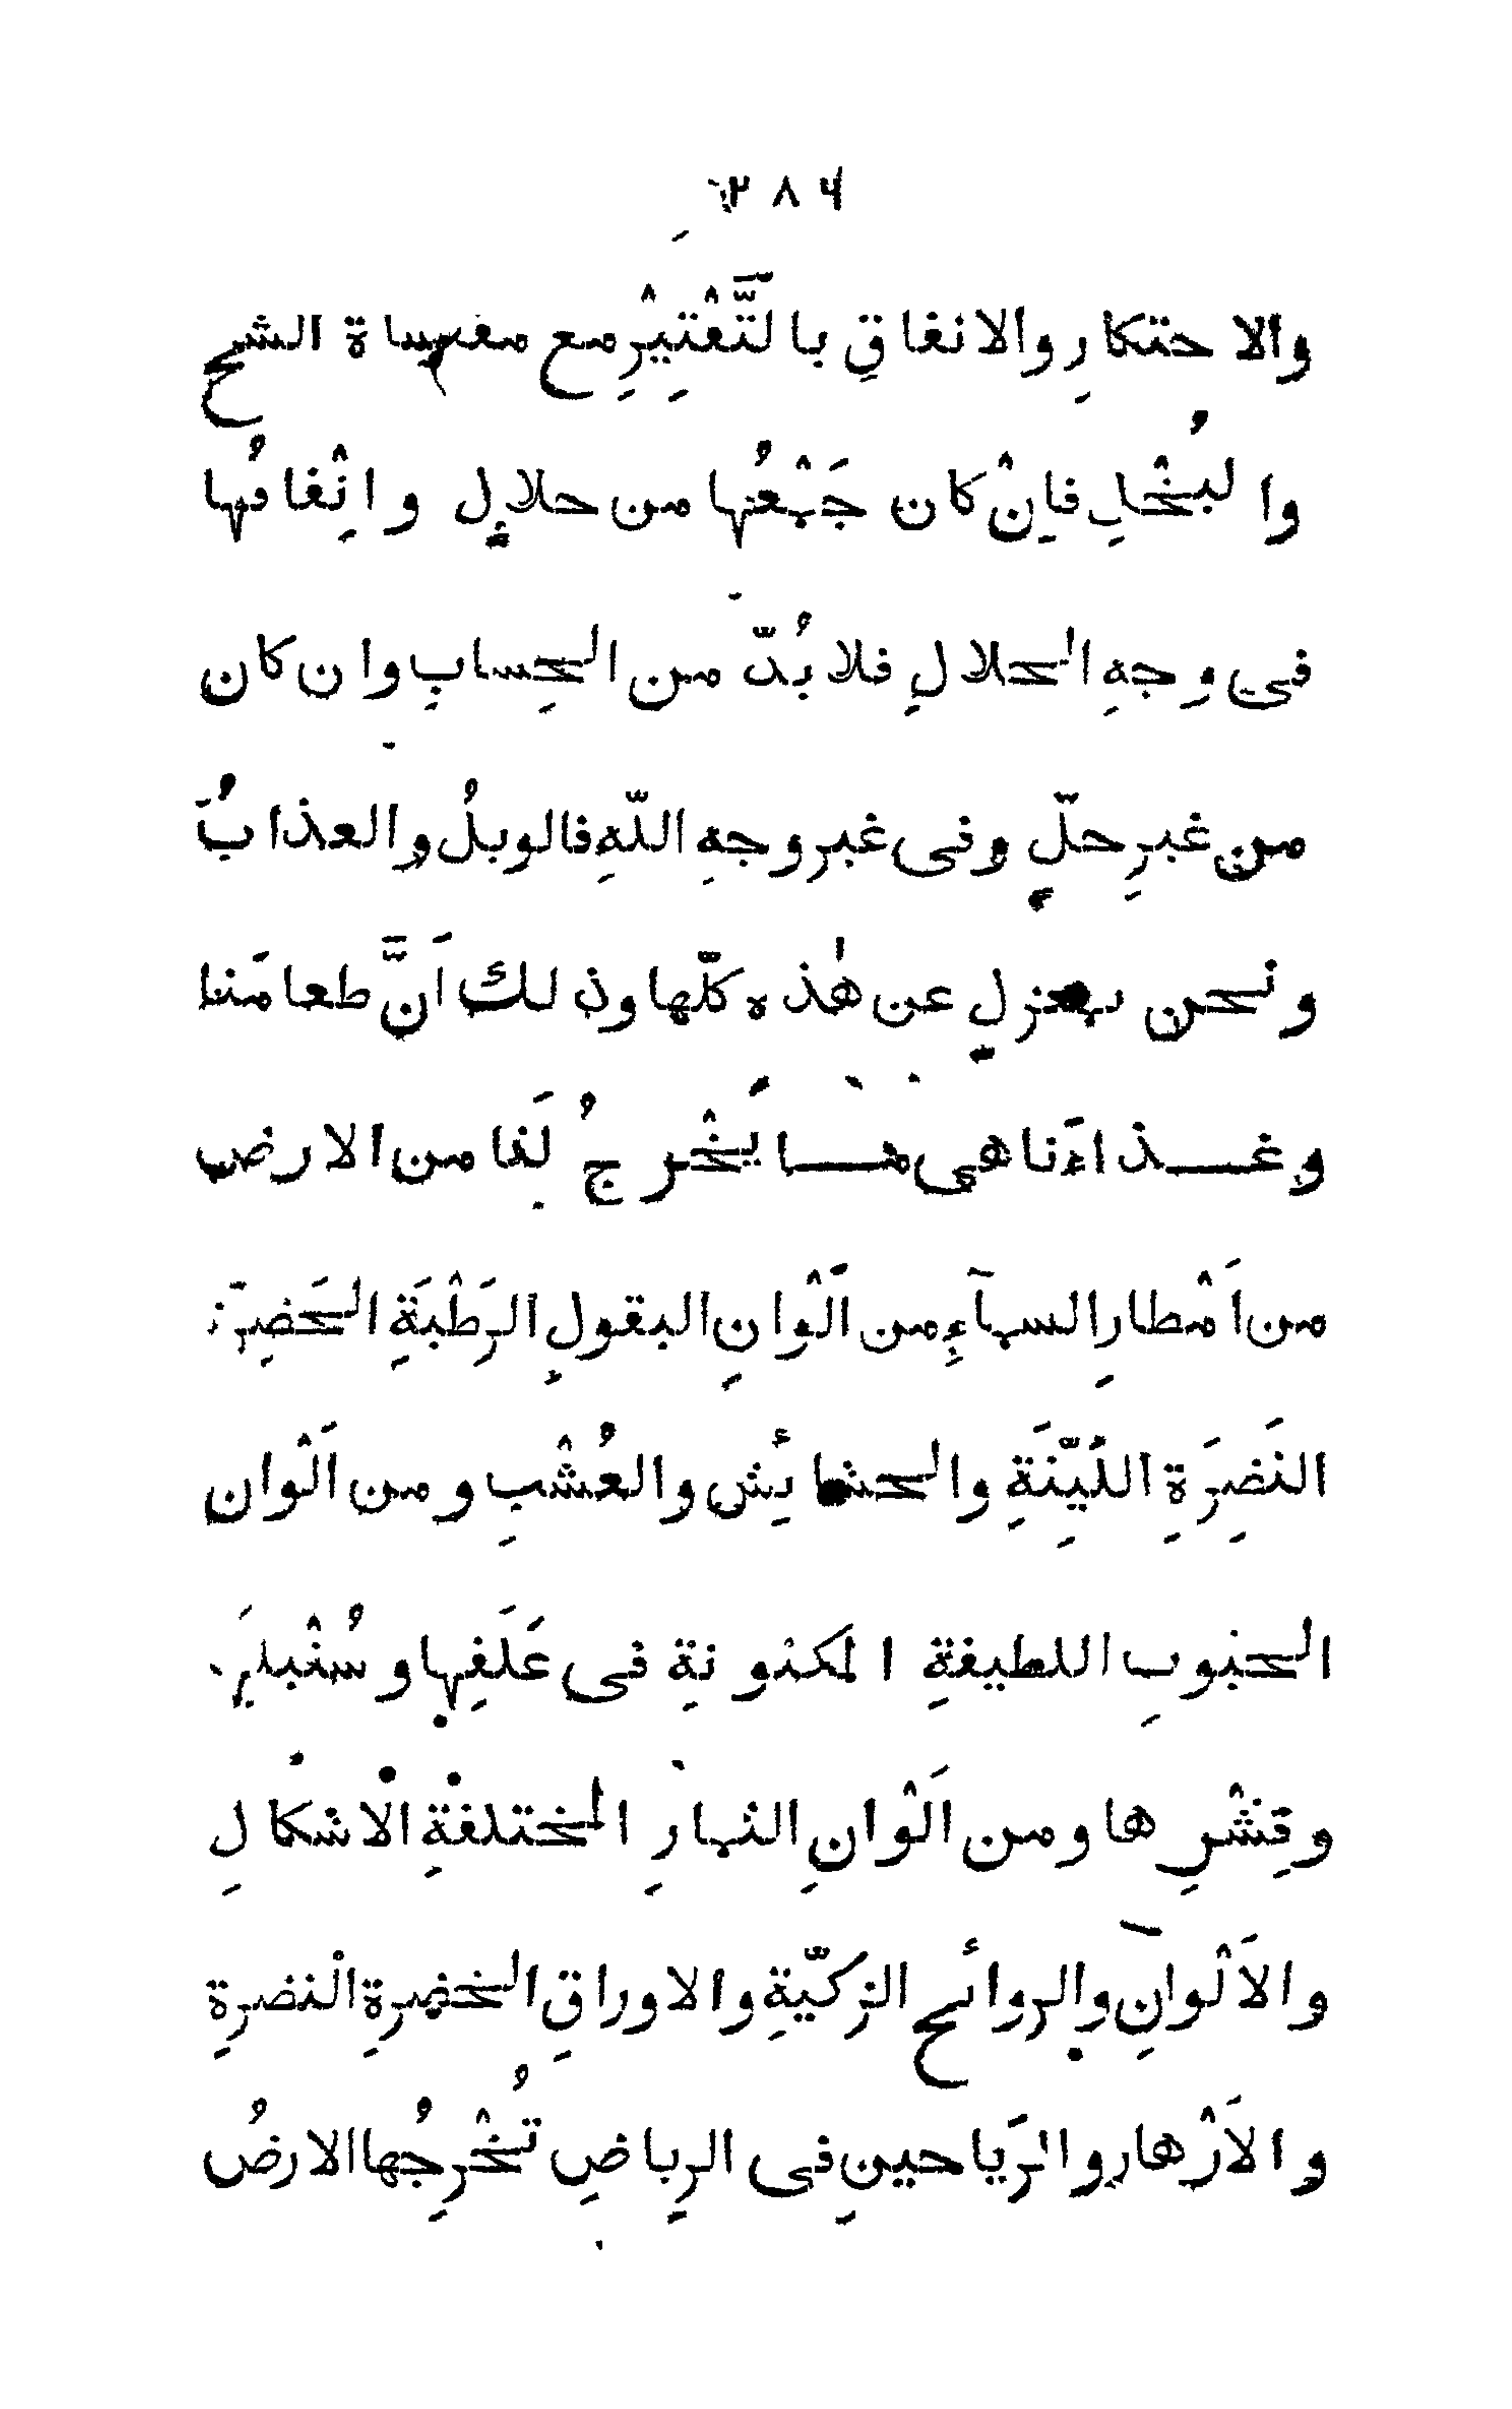 ٢٨٤
والاحتكارِ والانفاقِ بالتَّقْتِيْرِ مع مقاساة الشح
والبُخْلِ فاِنْ كان جَمْعُها من حلالٍ وانْفاقُها
فى وجهِ الحلالِ فلا بُدّ من الحِسابِ وان كان
من غيرِ حلٍّ وفى غير وجهِ اللّهِ فالويلُ والعذابُ
ونحن بمعزلٍ عن هٰذه كلّها وذلك اَنَّ طعامَنا
وغذاءَنا هى ما يَخْرجُ لَنا من الارض
من اَمْطارِ السمآءِ من اَلْوانِ البقولِ الرَطْبَةِ الخَضِرَة
النَضِرَةِ اللَيّنَةِ والحشائش والعُشْبِ ومن اَلْوان
الحبوبِ اللطيفةِ المكنونةِ فى غَلَفِها وسُنْبلِهَا
وقِشْرِها ومن اَلْوانِ الثمارِ المختلفةِ الاشكالِ
والاَلْوانِ والروائح الزكيّةِ والاوراقِ الخضرةِ النضرةِ
والاَزْهار والرَياحينِ فى الرياضِ تُخْرِجُها الارضُ